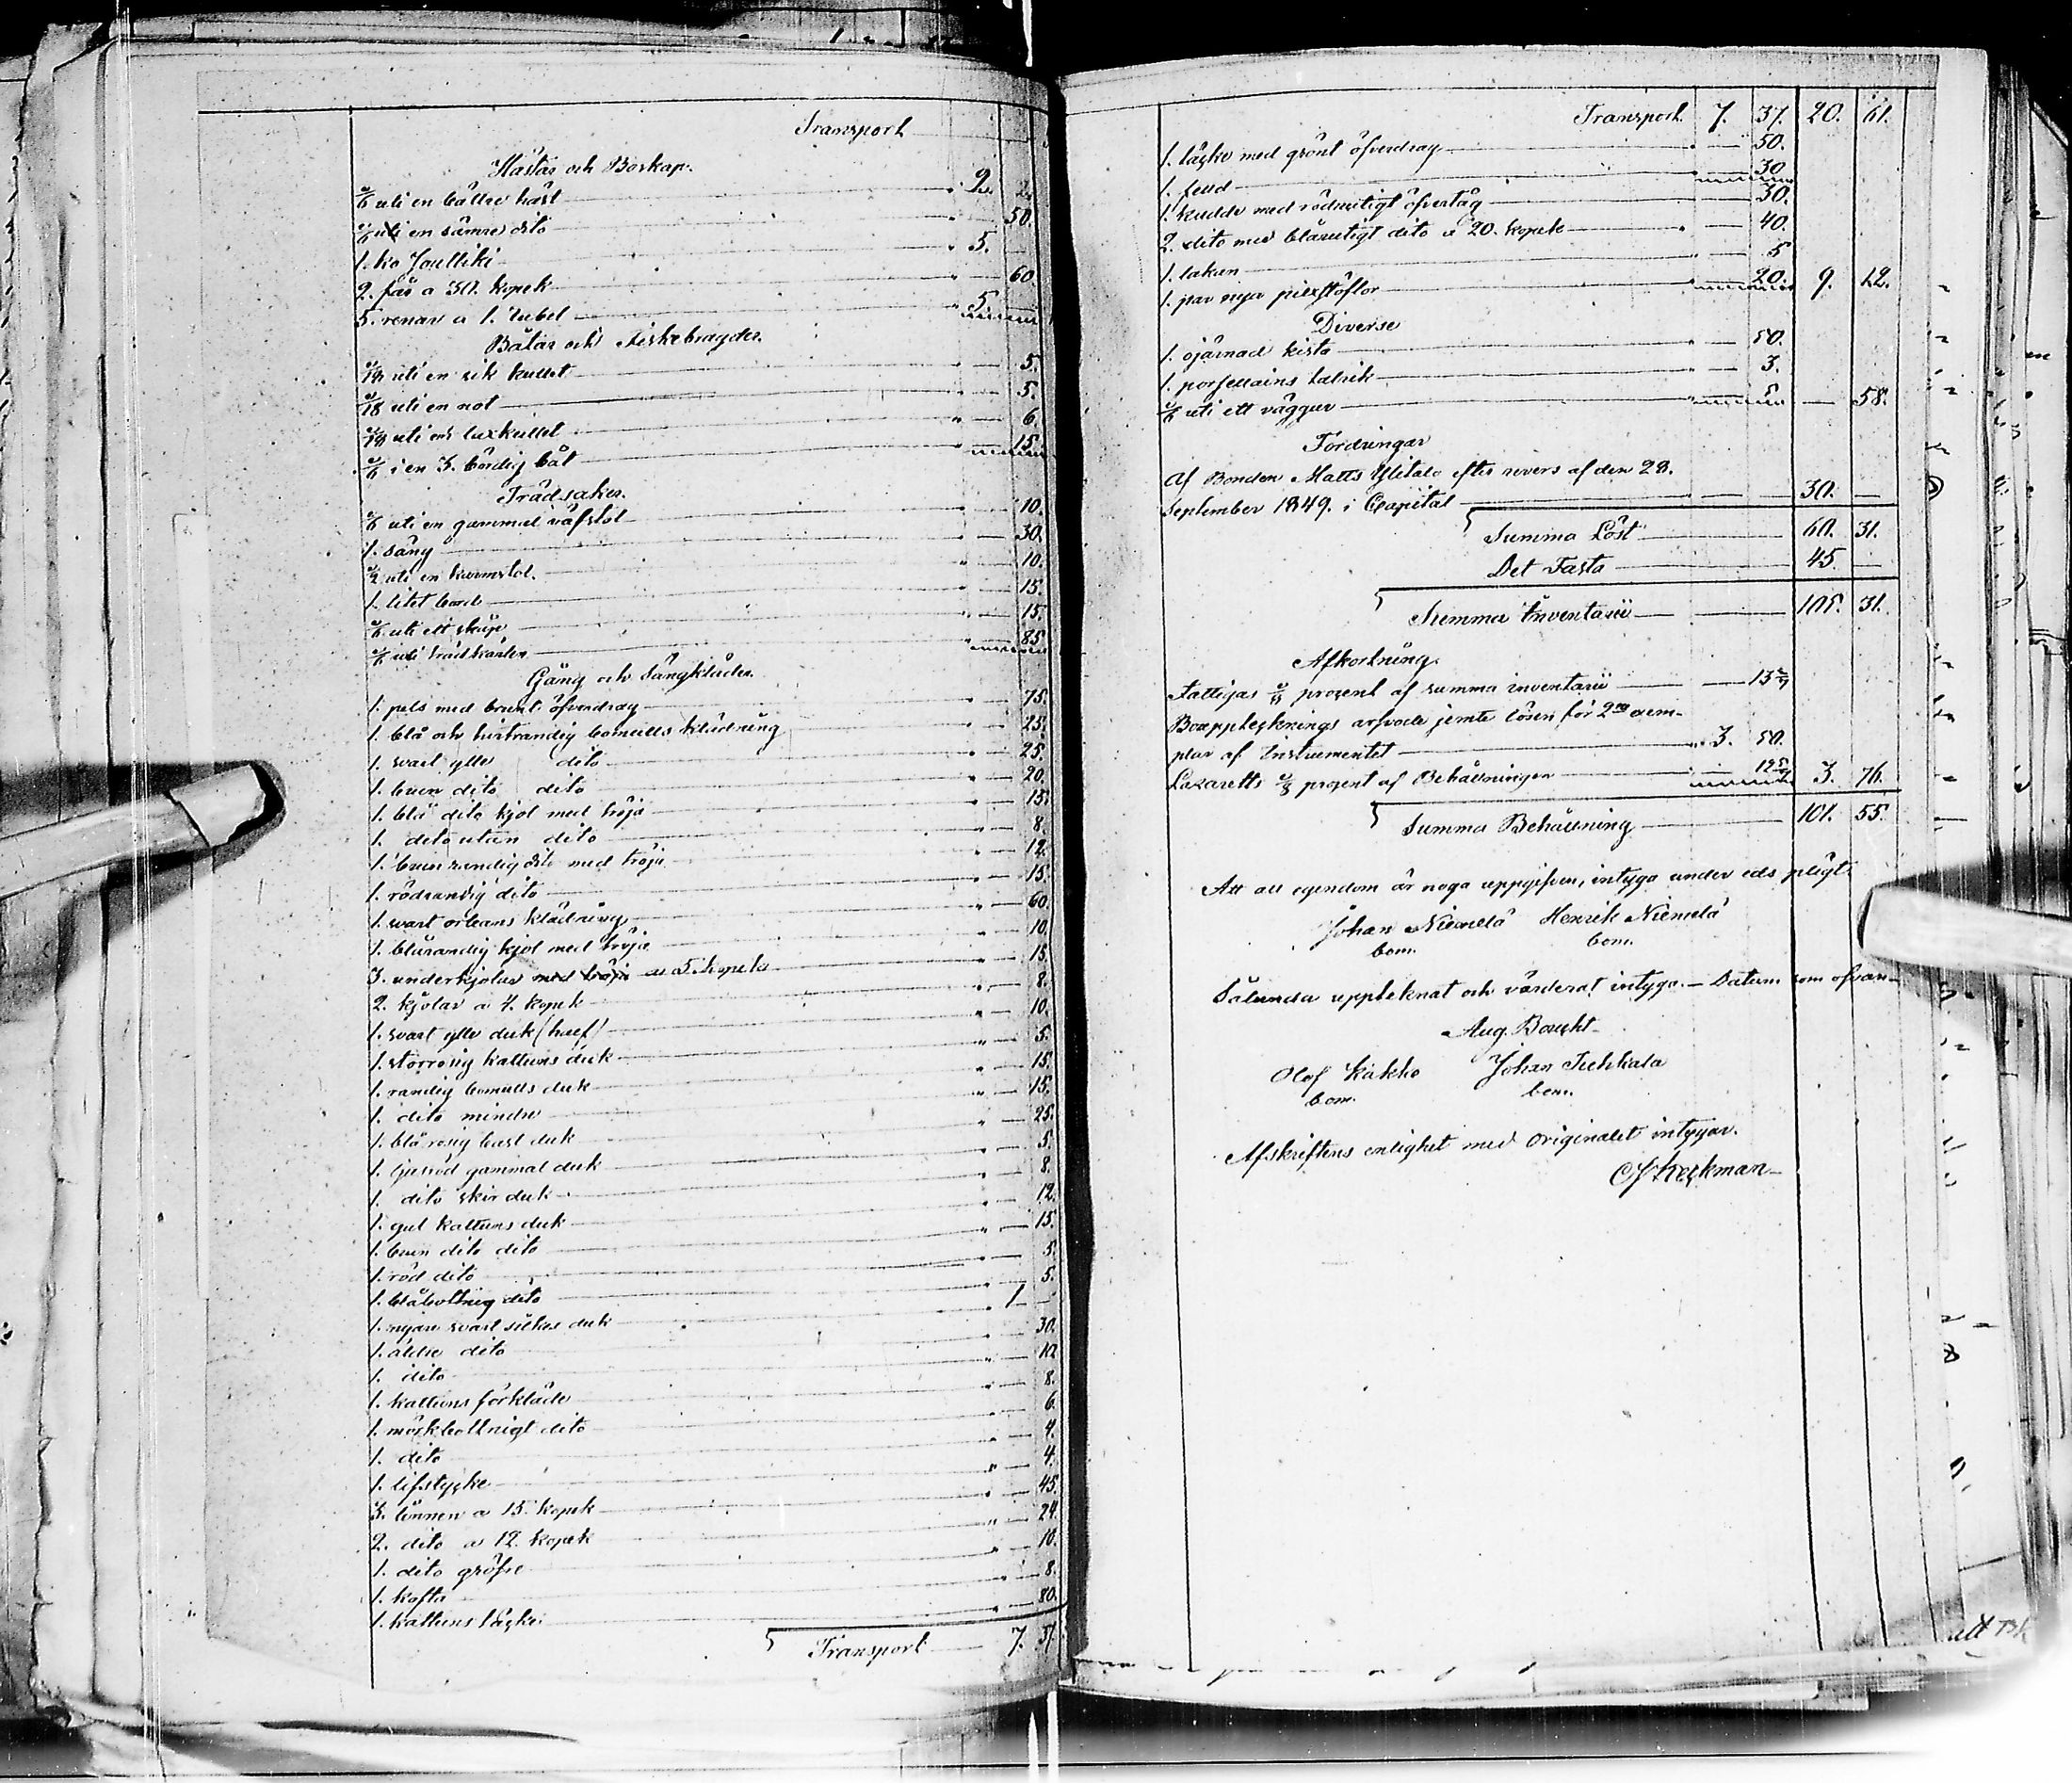 Transport
Hästar och Boskap.
1/6 uti en bättre häst — 2.
1/6 uti en sämre dito — 50.
1. ko Joulliki — 5.
2. får a 30. kopek — 60
5. renar a 1. Rubel — 5
Båtar och Fiskebragder.
uti en sik kullet — 5.
1/18 uti en not — 5.
uti en laxkullet — 6.
1/6 i en 3. bördig båt — 15.
Trädsaker.
1/6 uti en gammal väfstol — 10.
1. säng — 30.
1/2 uti en karmstol. — 10.
1. litet bord — 15.
1/6 uti ett skåp — 15.
1/6 uti trädkärlen — 85
Gång och Sängkläder.
1. pels med brunt öfverdrag — 75.
1. blå och hvitrandig bomulls klädning — 25.
1. svart ylle dito — 25.
1. brun dito dito — 20.
1. blå dito kjol med tröja — 15.
1. dito utan dito — 8.
1. brunrandig dito med tröja — 12.
1. rödrandig dito — 15.
1. svart orleans klädning — 60.
1. blårandig kjol med tröja — 10.
3. underkjolar med tröja a 5. kopek — 15.
2. kjolar a 4. kopek — 8.
1. svart ylle duk (huf) — 10.
1. storrosig kattuns duk — 5.
1. randig bomulls duk — 15.
1. dito mindre — 15.
1. blå rosig bast duk — 25.
1. ljusröd gammal duk — 5.
1. dito skir duk — 8.
1. gul kattuns duk — 12.
1. brun dito dito — 15.
1. röd dito — 5.
1. blåbottnig dito — 5.
1. nyare svart silkes duk — 1 —
1. äldre dito — 30.
1. dito — 10.
1. kattuns förkläde — 8.
1. mörkbottnigt dito — 6.
1. dito — 4.
1. lifstycke — 4.
3. linnen a 15. kopek — 45.
2. dito a 12. kopek — 24.
1. dito gröfre — 10.
1. kofta — 8.
1. kattuns täcke — 80.
Transport — 7. 37
Transport. 7. 37. 20. 61.
1. täcke med grönt öfverdrag — 50.
1. feud — 30
1. kudde med rödrutigt öfvertåg — 30.
2. dito med blårutigt dito a 20. kopek — 40.
1. lakan — 5
1. par nya piexstöflor — 20. 9. 12.
Diverse
1. ojärnad kista — 50.
1. porsellains talrik — 3.
1/6 uti ett väggur — 5. — 58.
Fordringar
Af Bonden Matts Ylitalo efter revers af den 28.
September 1849. i Capital — 30. —
Summa Löst — 60. 31.
Det Fasta — 45. —
Summa Inventarii — 105. 31.
Afkortning.
Fattigas 1/8 procent af summa inventarii — 13
Boupptecknings arfvode jemte lösen för 2ne exem-
plar af Instrumentet — 3. 50.
Lazaretts 1/8 procent af Behållningen — 12 3. 76.
Summa Behållning — 101. 55.
Att all egendom är noga uppgifven, intyga under eds pligt.
Johan Niemelä Henrik Niemelä
bom. bom.
Sålunda upptecknat och värderat intyga. — Datum som ofvan —
Aug. Boucht
Olof Kakko Johan Tuohkala
bom. bom.
Afskriftens enlighet med originalet intygar.
CJ Keckman